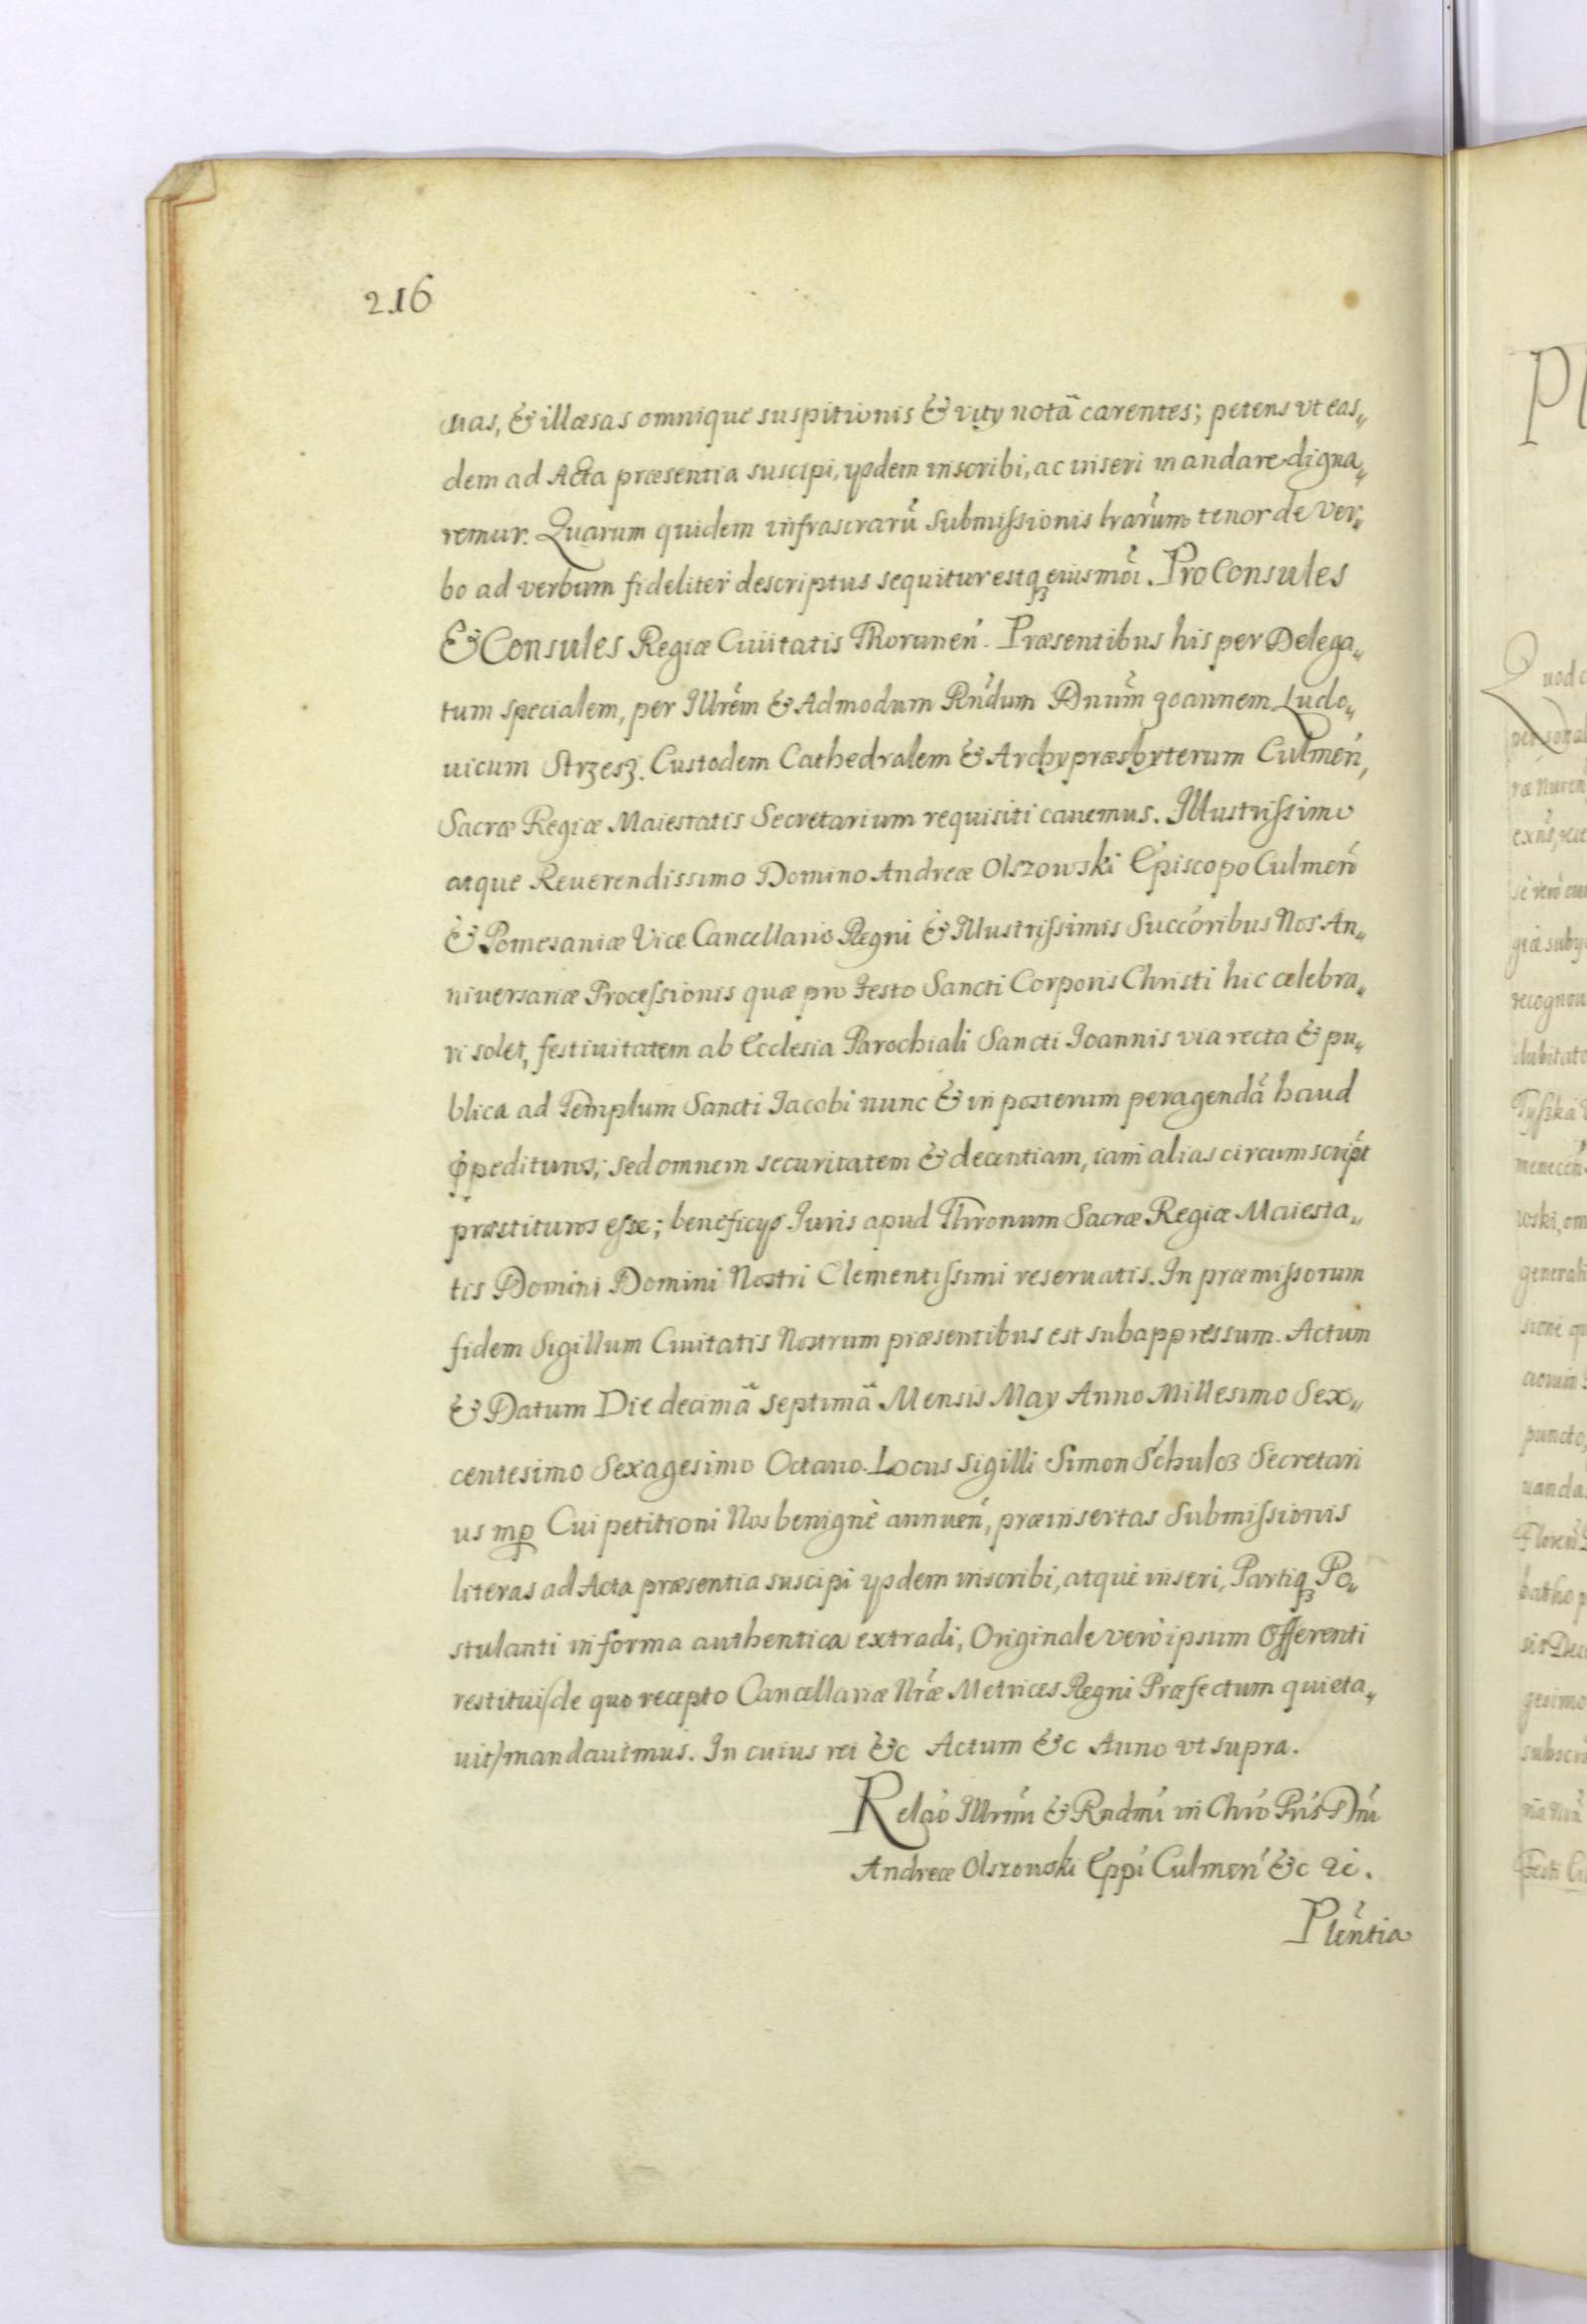 216
uas, & illæsas omnique suspitionis & vity notâ carentes; petens vt eas„
dem ad Acta præsentia suscipi, ysdem inscribi, ac inseri mandare digna„
remur. Quarum quidem infrascrarũ Submissionis lrarũm tenor de Ver„
bo ad verbum fideliter descriptus sequitur estqꝫ eiusmõi. ProConsules
& Consules Regiæ Ciuitatis Thorunen̄. Præsentibus his per Delega„
tum specialem, per Illrẽm & Admodum Rñdum Dnũm Joannem Ludo„
uicum Strzesz. Custodem Cathedralem & Archypræsbyterum Culmeñ,
Sacræ Regiæ Maiestatis Secretarium requisiti cauemus. Illustrissimo
atque Reuerendissimo Domino Andreæ Olszowski Episcopo Culmeñ
& Pomesaniæ Vice Cancellario Regni & Illustrissimis Succõribus Nos An„
niuersariæ Processionis quæ pro Festo Sancti Corporis Christi hic celebra„
ri solet, festiuitatem ab Ecclesia Parochiali Sancti Joannis via recta & pu„
blica ad Templum Sancti Jacobi nunc & in posterum peragendã haud
pedituros; sed omnem securitatem & decentiam, iam alias circumscript
præstituros esse; beneficys Juris apud Thronum Sacræ Regiæ Maiesta„
tis Domini Domini Nostri Clementissimi reseruatis. In præmissorum
fidem Sigillum Ciuitatis Nostrum præsentibus est subappressum. Actum
& Datum Die decimâ septimâ Mensis May Anno Millesimo Sex„
centesimo Sexagesimo Octauo. Locus Sigilli Simon Schulcz Secretari
us mp Cui petitioni Nos benignè annueñ, præinsertas Submissionis
literas ad Acta præsentia suscipi ysdem inscribi, atque inseri, Partiqꝫ Po„
stulanti in forma authentica extradi, Originale verò ipsum Offerenti
restitui (de quo recepto Cancellariæ Nræ Metrices Regni Præfectum quieta„
uit) mandauimus. In cuius rei &c Actum &c Anno vt supra.
Relaõ Illrmi & Rndmi in Chrõ Pris Dñi
Andreæ Olszouski Eppi Culmeñ &c &c.
Pleñtia